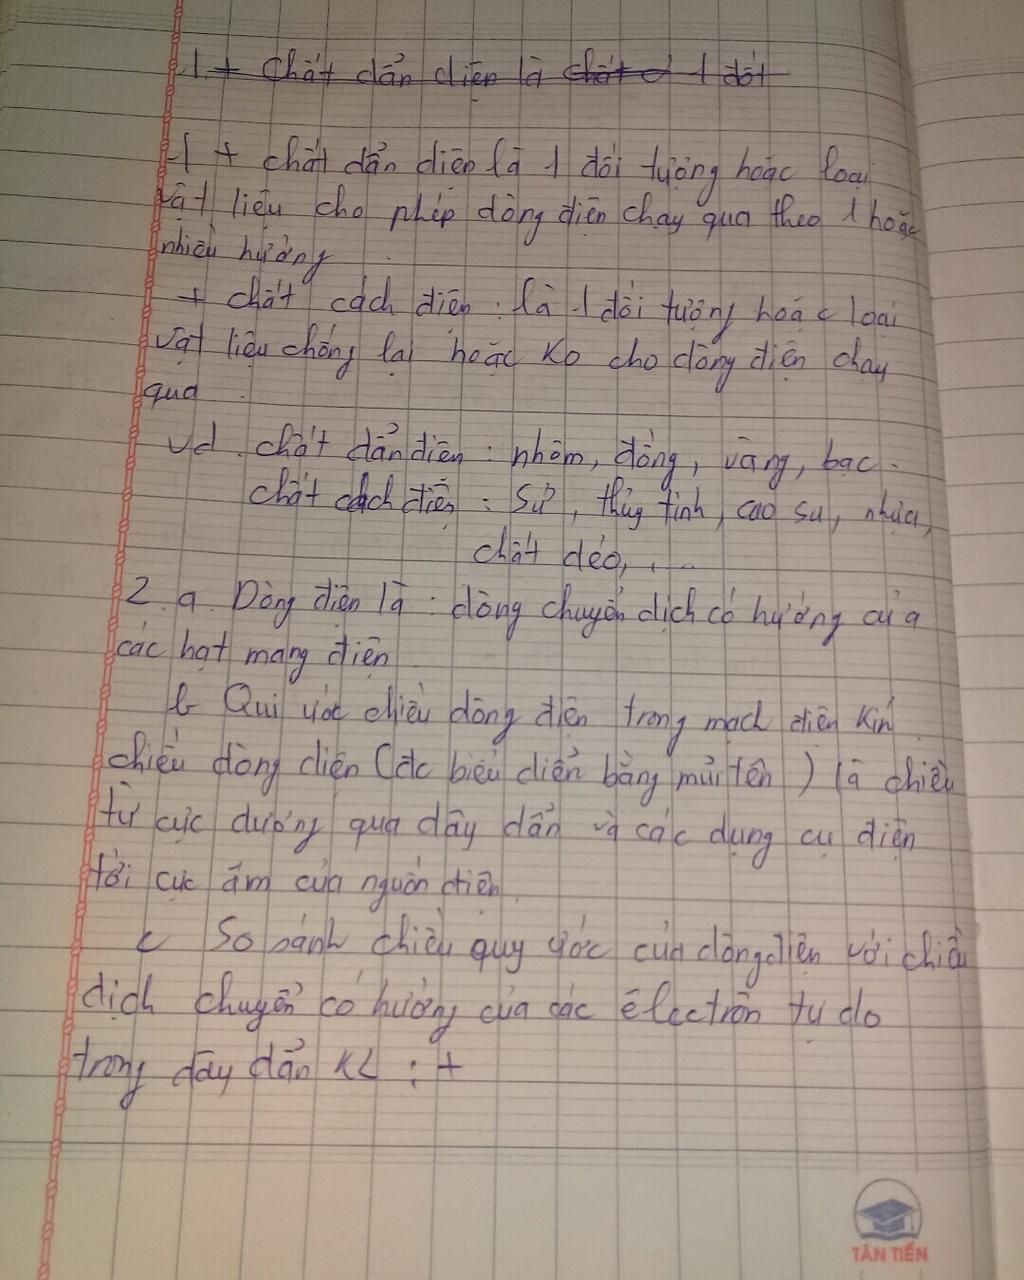 1 + chất dẩn diện là chất d 1 đốt
1 + chất dẩn diện là 1 đối tượng hoặc loại
vật liệu cho phép dòng điện chạy qua theo 1 hoặc
nhiều hướng
+ chất cách điện : là 1 đối tượng hoặc loại
vật liệu chống lại hoặc ko cho dòng điện chạy
qua
vd . chất dẩn điện : nhôm, đồng, vàng, bạc.
chất cách điện : Sứ, thủy tinh, cao su, nhựa,
chất dẻo, . . .
2. a. Dòng điện là : dòng chuyển dịch có hướng của
các hạt mang điện
b Qui ước chiều dòng điện trong mạch điện kín
chiều dòng điện (đc biểu diển bằng mủi tên ) là chiều
từ cực dương qua dây dẩn và các dụng cụ điện
tới cực âm của nguồn điện.
c So sánh chiều quy ước của dòng điện với chiều
dịch chuyển có hướng của các êlectrôn tự do
trong dây dẩn KL : +
TÂN TIẾN